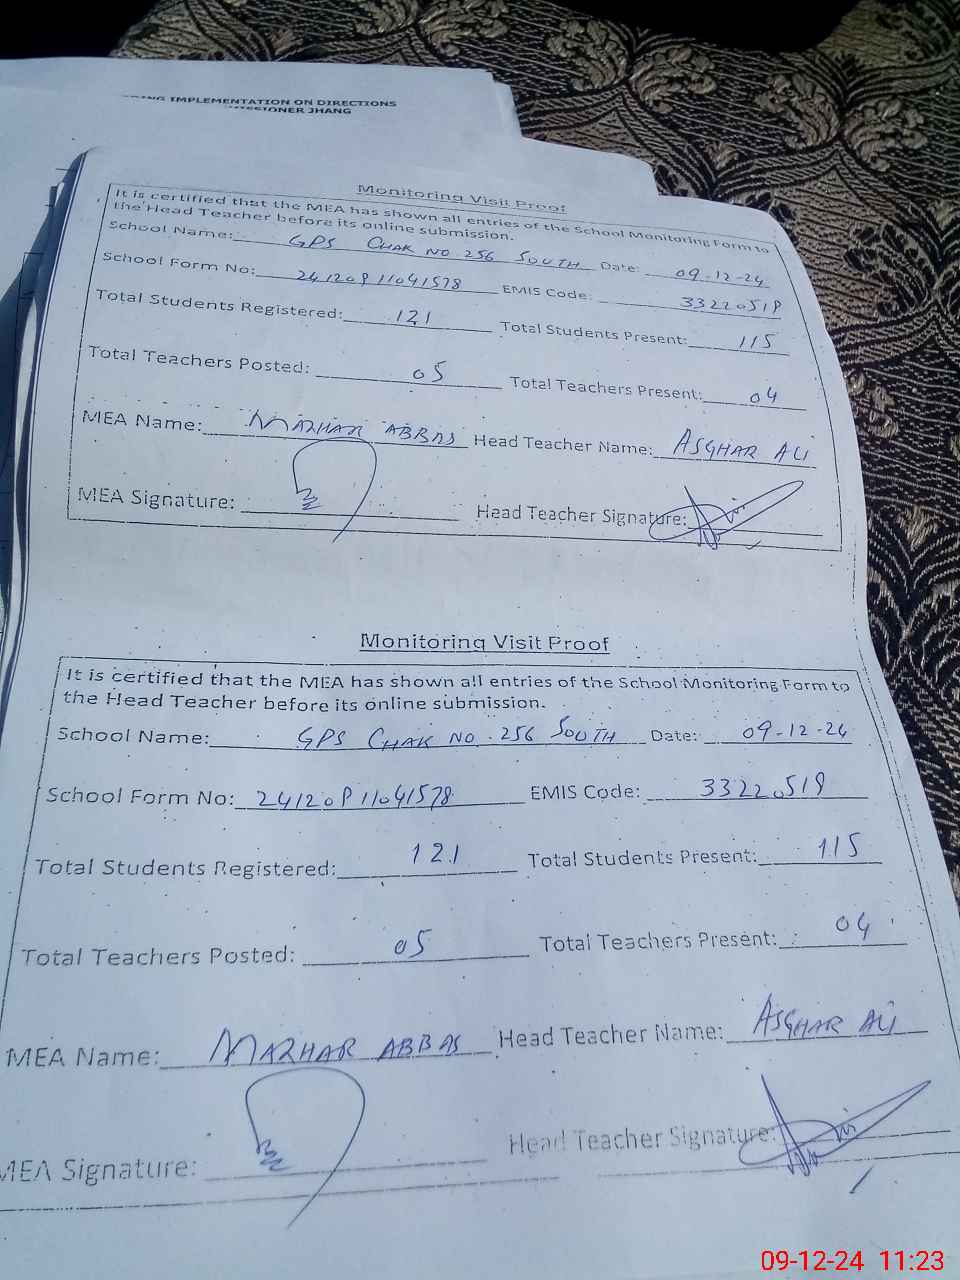 IMPLEMENTATION ON DIRECTIONS
JHANG
Monitoring Visit Proof
It is certified that the MEA has shown all entries of the School Monitoring Form to
the Head Teacher before its online submission.
School Name: GPS CHAK NO. 256 SOUTH Date: 09-12-24
School Form No: 241209 11041578 EMIS Code: 33220519
Total Students Registered: 121 Total Students Present: 115
Total Teachers Posted: 05 Total Teachers Present: 04
MEA Name: MAZHAR ABBAS Head Teacher Name: ASGHAR ALI
MEA Signature: Head Teacher Signature:
Monitoring Visit Proof
It is certified that the MEA has shown all entries of the School Monitoring Form to
the Head Teacher before its online submission.
School Name: GPS CHAK NO. 256 SOUTH Date: 09-12-24
School Form No: 241209 11041578 EMIS Code: 33220519
Total Students Registered: 121 Total Students Present: 115
Total Teachers Posted: 05 Total Teachers Present: 04
MEA Name: MAZHAR ABBAS Head Teacher Name: ASGHAR ALI
MEA Signature: Head Teacher Signature:
09-12-24 11:23